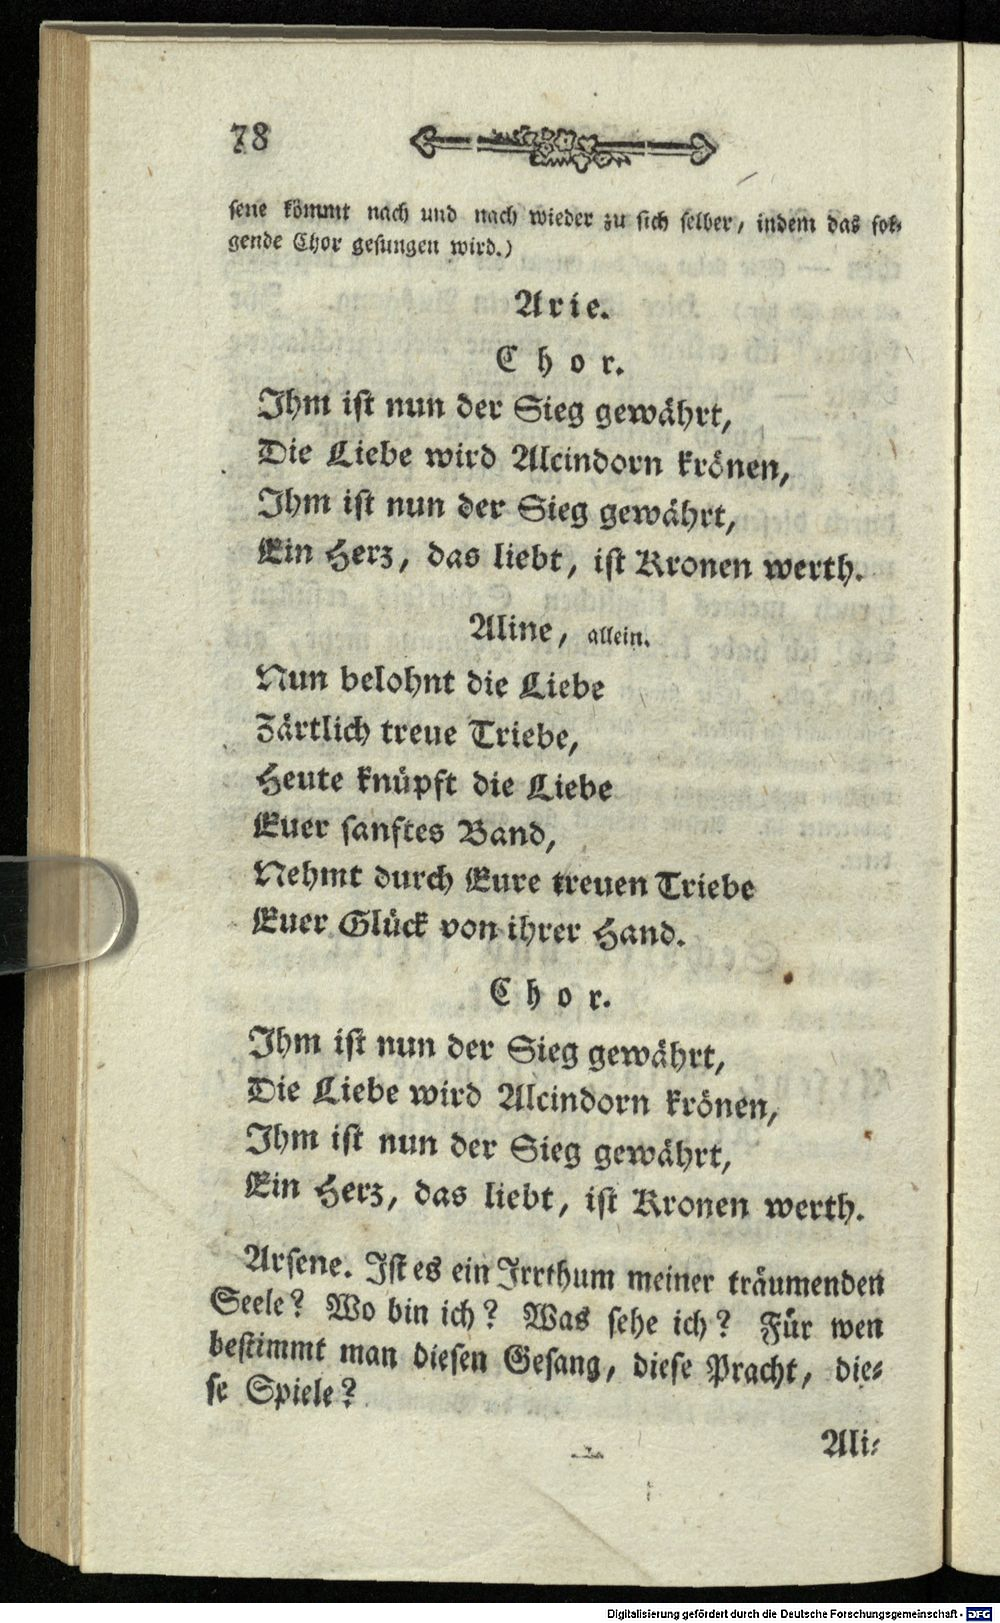 78
sene kömmt nach und nach wieder zu sich selber, indem das fol-
gende Chor gesungen wird.)
Arie.
Chor.
Ihm ist nun der Sieg gewährt,
Die Liebe wird Alcindorn krönen,
Ihm ist nun der Sieg gewährt,
Ein Herz, das liebt, ist Kronen werth.
Aline, allein.
Nun belohnt die Liebe
Zärtlich treue Triebe,
Heute knüpft die Liebe
Euer sanftes Band,
Nehmt durch Eure treuen Triebe
Euer Glück von ihrer Hand.
Chor.
Ihm ist nun der Sieg gewährt,
Die Liebe wird Alcindorn krönen,
Ihm ist nun der Sieg gewährt,
Ein Herz, das liebt, ist Kronen werth.
Arsene. Ist es ein Irrthum meiner träumenden
Seele? Wo bin ich? Was sehe ich? Für wen
bestimmt man diesen Gesang, diese Pracht, die-
se Spiele?
Ali-
Digitalisierung gefördert durch die Deutsche Forschungsgemeinschaft - DFG